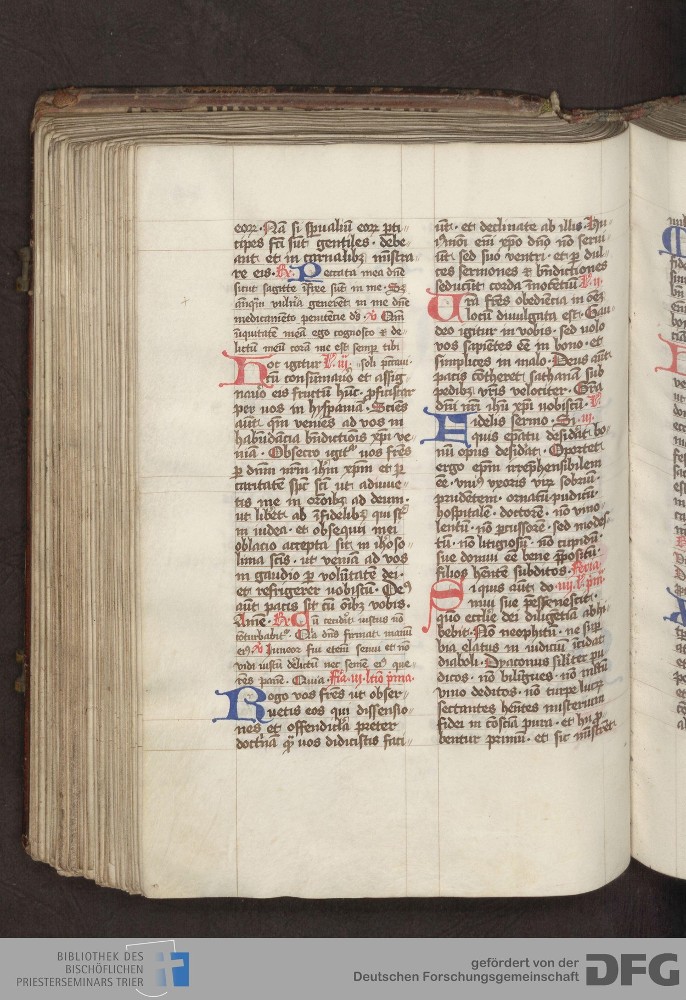 eorꝝ. Nā si spūaliū eorꝝ pti
cipes fc̄i sūt gentiles. debe
ant et in carnalibꝫ mīstra
re eis. R̸. Peccata mea dn̄e
sicut sagitte īfixe sūt in me. Sꝫ
anq̄m vulnīa generēt in me dn̄e
medicamēto penitēcie ds̄. v̸ Qm̄
iniquitatē meā ego cognosco et de
lictū meū corā me est semꝑ tibi
Hoc igitur L̄. iij. soli peccaui.
cū consūmauo et assig
nauo eis fructū hūc. ꝓficiscar
per uos in hyspaniā. Scies
aūt. qm̄ venies ad vos in
habūdācia bn̄dictiois xp̄i ve
niā. Obsecro igitᷣ uos fr̄es
ꝑ dn̄m nr̄m ih̄m xp̄m et ꝑ
caritatē spc̄ sc̄i ut adiuue
tis me in or̄oibꝫ ad deum.
ut libeꝛ ab īfidelibꝫ qui st̄
in iudea. et obsequii mei
oblacio accepta sit in ih̄oso
lima sc̄is. ut veniā ad vos
in gaudio ꝑ volūtatē dei.
et refrigerer uobiscū. Deꝰ
aūt pacis sit cū oībꝫ vobis.
Amē. R̸. Cū cecidit iustus nō
cōturbabitᷣ. Q̄a dn̄s firmat manū
eiꝰ v̸ Junior fui etem̄ senui et nō
vidi iustū delictū nec semē eiꝰ que
rēs panē. Quia. Fīa. iij. lcīo p̄ma.
Rogo vos fr̄es ut obser
uetis eos qui dissensio
nes et offendicla preter
doctnā q̄ uos didicistis faci
ūt. et declinate ab illis. Hu
iꝰmōi eni xp̄o dn̄o nō serui
ūt sed suo ventri. et ꝑ dul
ces sermones et bn̄dictiones
seducūt corda īnocētiū L̄. ii.
Vr̄a fr̄es obediēcia in oēꝫ
locū diuulgata est. Gau
deo igitur in vobis. sed uolo
vos sapiētes eē in bono. et
simplices in malo. Deus aūt
pacis cōtheret sathanā sub
pedibꝫ vr̄is velociter. Gr̄a
dn̄i nr̄i ih̄u xp̄i uobiscū. L̄.
Fidelis sermo. Si. iii.
quis ep̄atū desidāt bo
nū opus desidāt. Oportet
ergo ep̄m irrephēsibilem
eē. vniꝰ vxoris virꝝ sobriū.
prudētem. ornatū. pudicū.
hospitalē. doctorē. nō vino
lentū. nō ꝑcussorē. sed modes
tū. nō litigiosū. nō cupidū.
sue domui eē bene ꝓpositū.
filios hn̄tē subditos. Feria.
Si quis aūt do iiij. L̄. p̄ma.
mui sue p̄esse nescit.
quō eccl̄ie dei diligētiā adhi
bebit. Nō neophitū. ne supꝑ
bia elatus in iudiciū īcidat
diaboli. Dyaconus sīliter pu
dicos. nō bilīgues. nō multū
vino deditos. nō turpe lucꝝ
sectantes hn̄tes misteriū
fidei in cōscīa pura. et hii ꝓ
bentur primū. et sic mīstrēt
BIBLIOTHEK DES
BISCHÖFLICHEN
PRIESTERSEMINARS TRIER
gefördert von der
Deutschen Forschungsgemeinschaft
DFG